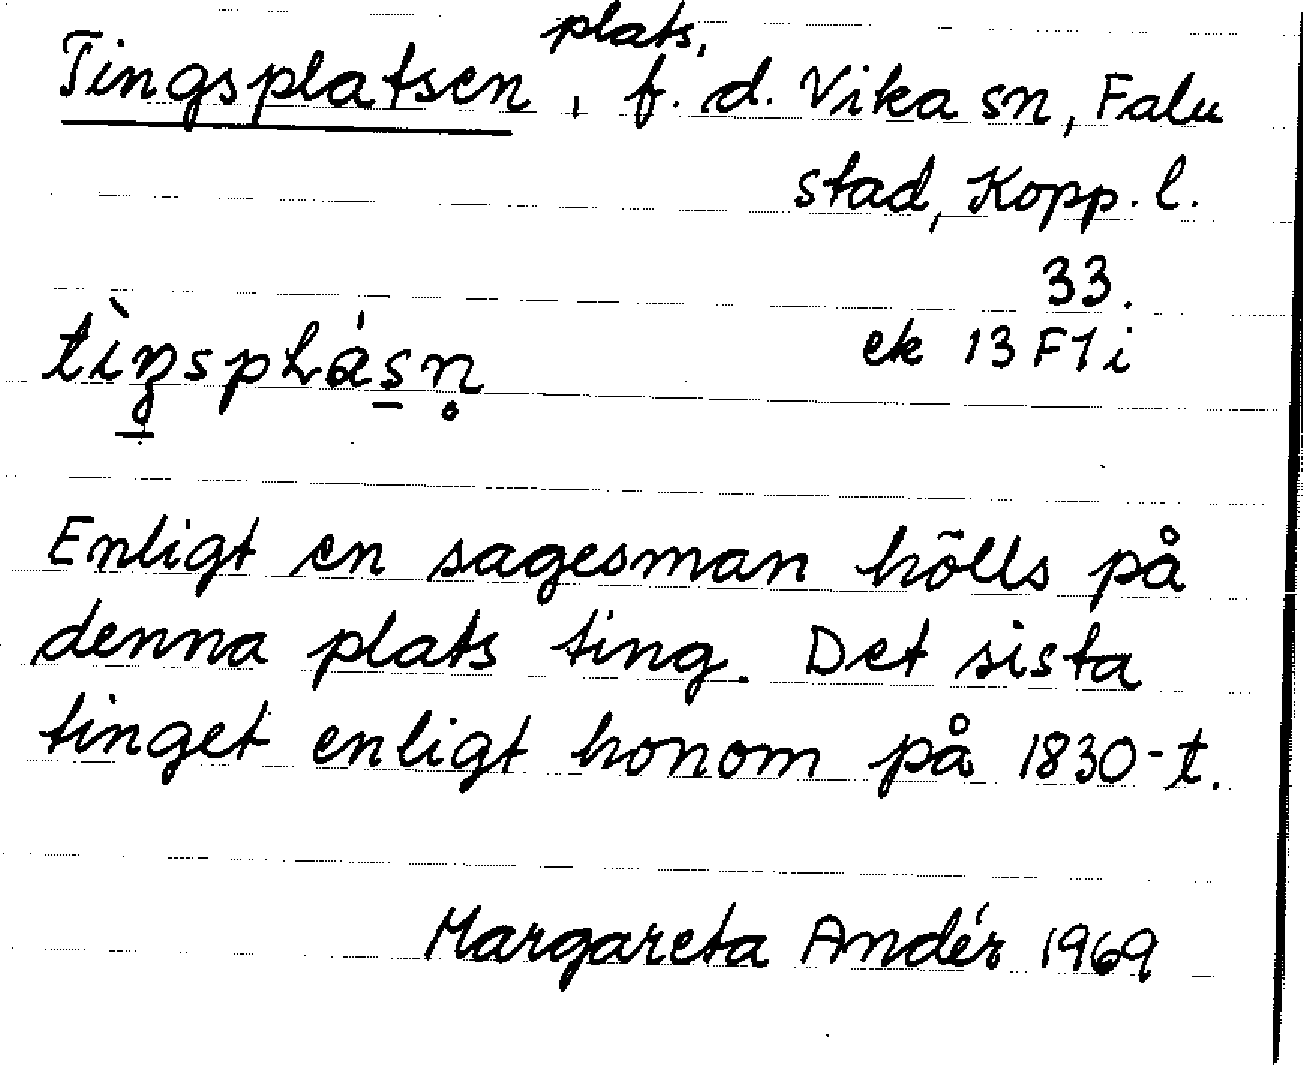 plats,
Tingsplatsen, f. d. Vika sn, Falu
stad, Kopp. l.
33.
ek 13 F1i
Enligt en sagesman hölls på
denna plats ting. Det sista
tinget enligt honom på 1830-t.
Margareta Andér 1969